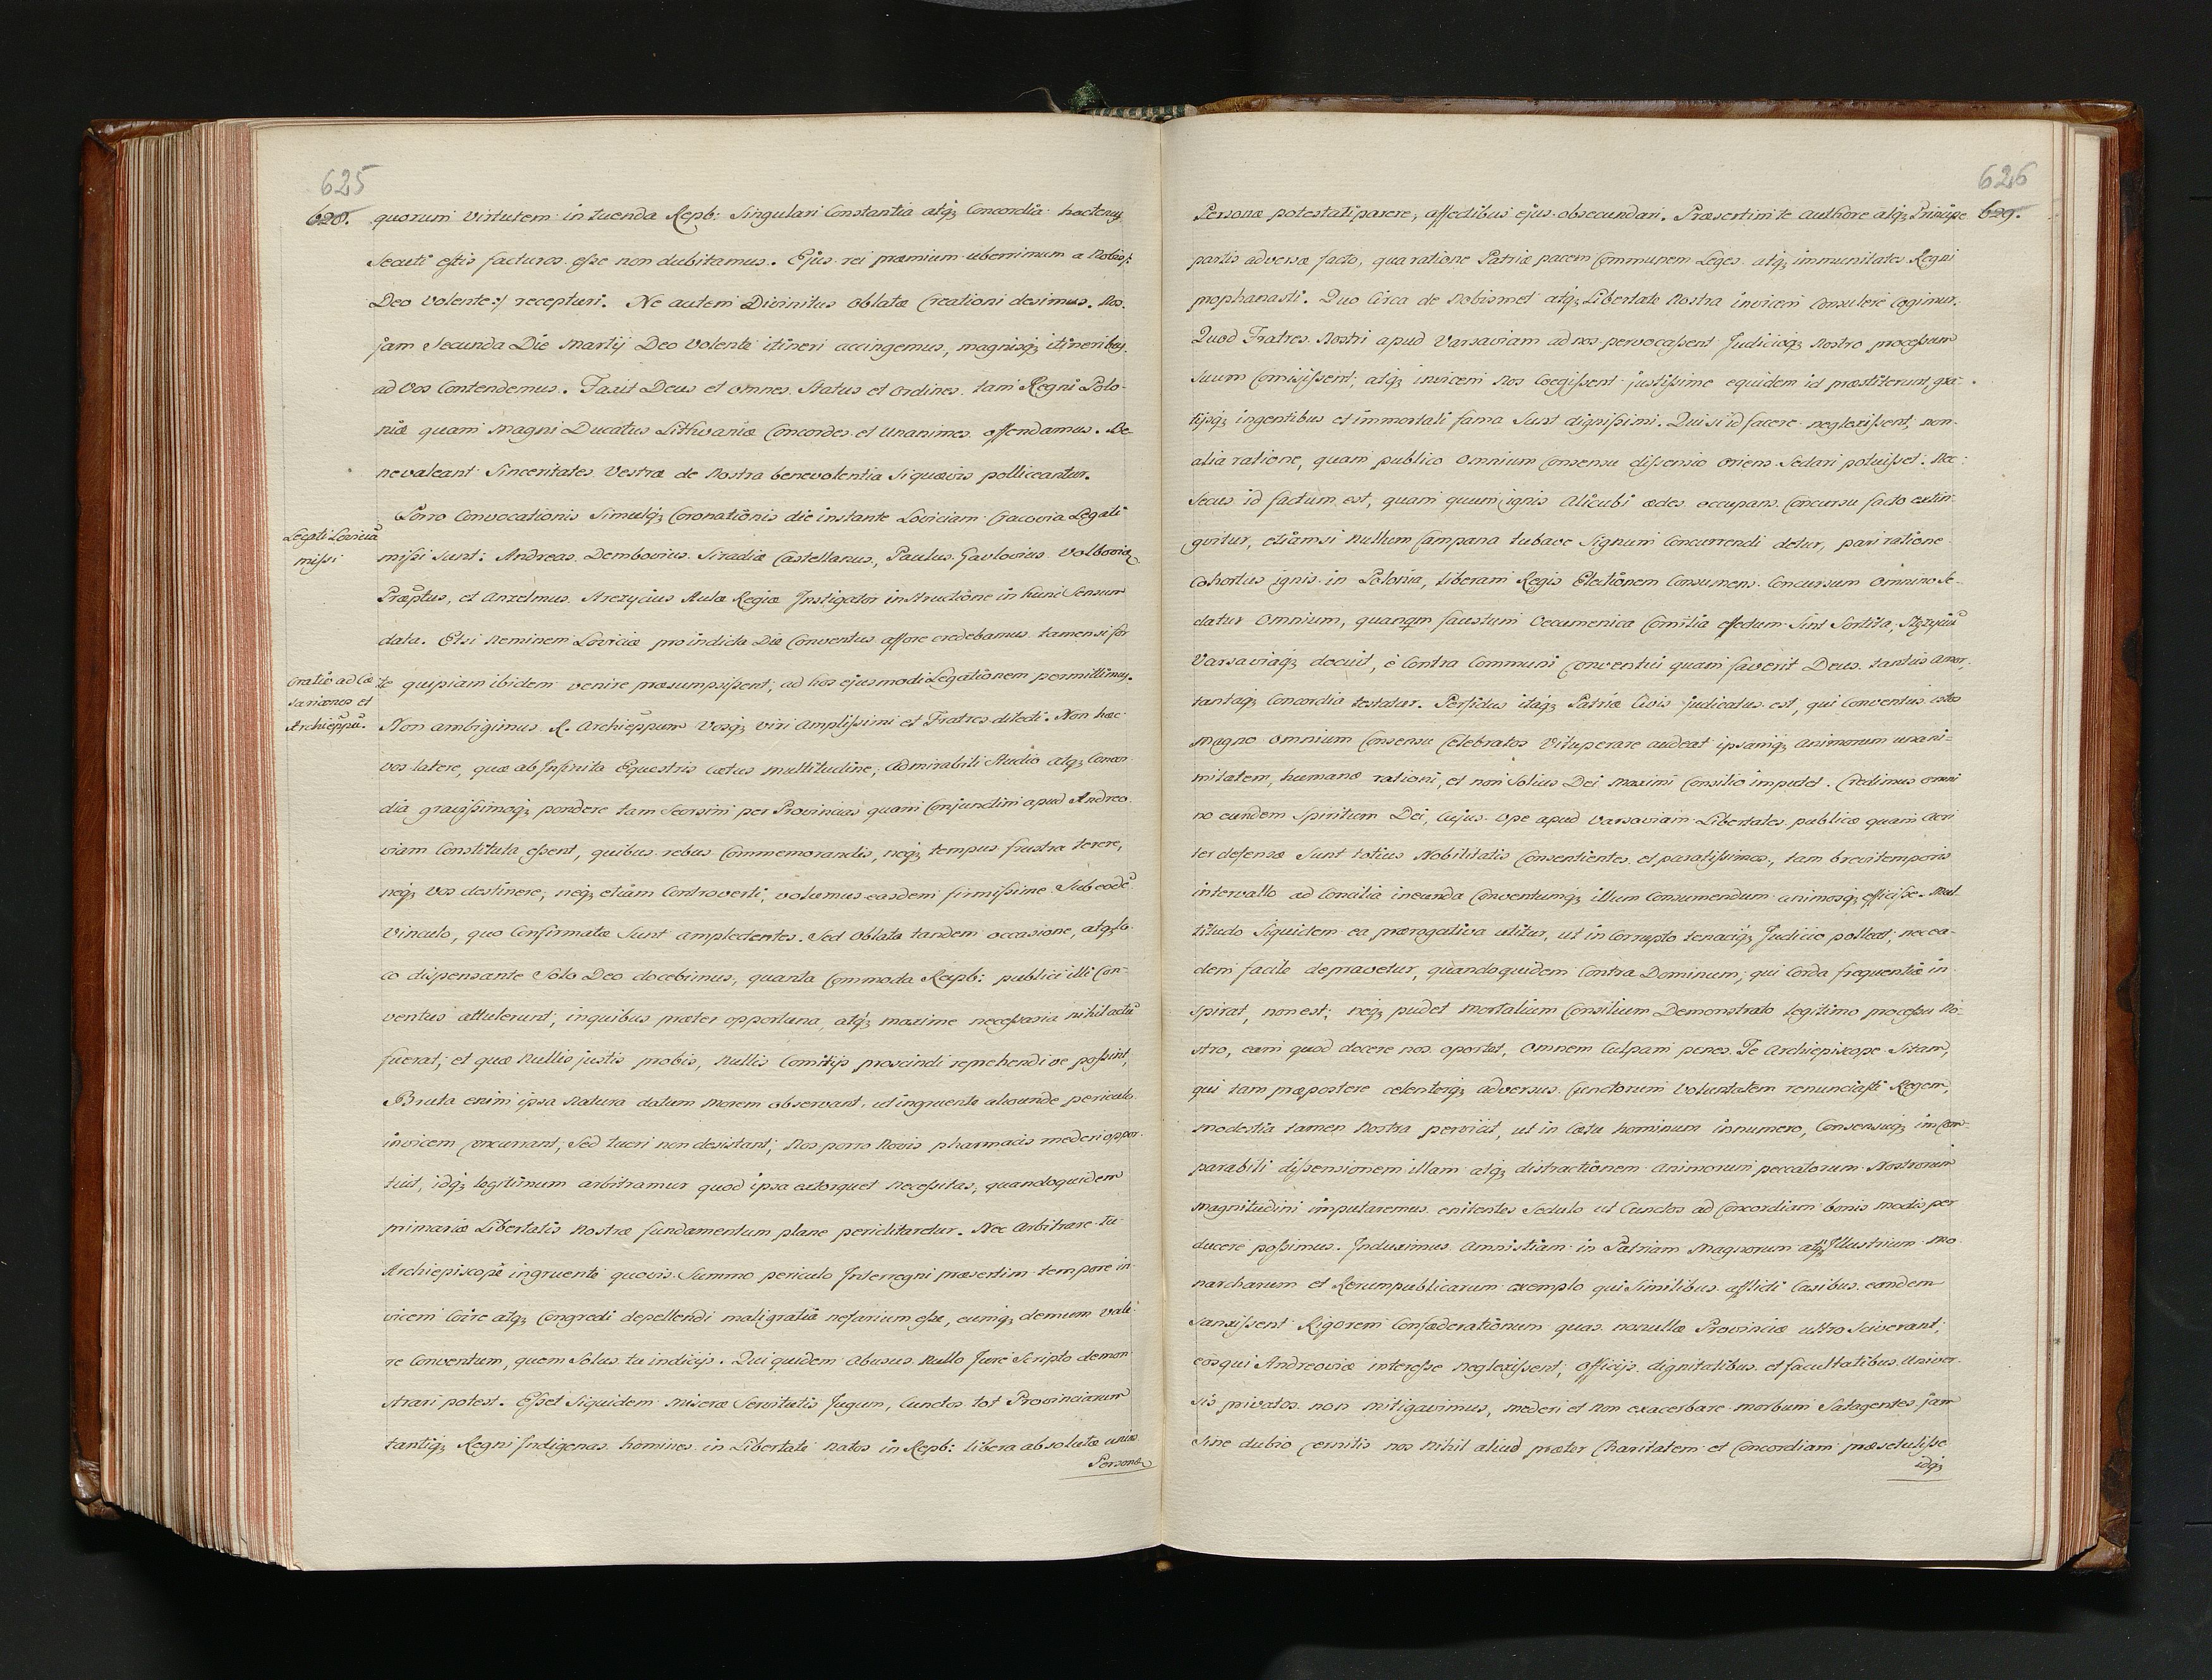 625
628.
quorum virtutem in tuenda Repb: Singulari Constantia atq; Concordia hactenus
Secuti estis facturos esse non dubitamus. Ejus rei præmium uberrimum a Nobis /:
Deo volente :/ recepturi. Ne autem Divinitus oblatæ Creationi desimus. Nos
jam Secunda Die Martij Deo volente itineri accingemus, magnisq; itineribus
ad Vos Contendemus. Faxit Deus et omnes Status et ordines tam Regni Polo-
niæ quam Magni Ducatus Lithvaniæ Concordes et Unanimes offendamus. Be-
ne valeant Sinceritates Vestræ de Nostra benevolentia Siquævis polliceantur.
Legati Lovicia
missi
Porro Convocationis Simulq; Coronationis die instante Loviciam Cracovia Legati
missi Sunt: Andreas Dembovius Siradiæ Castellanus, Paulus Gavlovius Volboriæ
Præptus, et Anzelmus Strezycius Aulæ Regiæ Instigator instructione in hunc Sensum
data. Etsi Neminem Loviciæ pro indicta Die Conventus affore credebamus tamen si for
Oratio ad Cæ
sarianos et
Archieppu.
te quipiam ibidem venire præsumpsissent, ad hos ejusmodi Legationem permittimus.
Non ambigimus R. Archieppum Vosq; viri Amplissimi et Fratres dilecti. Non hæc
vos latere, quæ ab Infinita Equestris cætus multitudine, admirabili Studio atq; Concor
dia gravissimoq; pondere tam Seorsim per Provincias quam Conjunctim apud Andreo
viam Constituta essent, quibus rebus Commemorandis, neq; tempus frustra terere,
neq; vos destinere, neq; etiam Controverti, volumus easdem firmissime Sub eodē
Vinculo, quo Confirmatæ Sunt amplectentes. Sed oblata tandem occasione, atq; lo-
co dispensante Solo Deo docebimus, quanta Commoda Reipb: publici illi Con-
ventus attulerunt, in quibus præter opportuna atq; maxime necessaria nihil actū
fuerat; et quæ Nullis justis probis, Nullis Comitijs proscindi reprehendi ve possint,
Bruta enim ipsa Natura datum morem observant, ut ingruente aliounde periculo
invicem concurrant, Sed tueri non desistant; Nos porro Novis pharmacis mederi oppor
tuit, idq; legitimum arbitramur quod ipsa extorquet Necessitas, quandoquidem
primariæ Libertatis Nostræ fundamentum plane periclitaretur. Nec Arbitrare tu
Archiepiscope ingruente quovis Summo periculo Interregni præsertim tempore in
vicem Coire atq; Congredi depellendi mali gratia nefarium esse, eumq; demum vale
re Conventum, quem Solus tu indicijs. Qui quidem abusus Nullo Jure Scripto demon
strari potest. Esset Siquidem miseræ Servitutis Jugum, Cunctos tot Provinciarum
tantiq; Regni Indigenas homines in Libertate natos in Repb: libera absolutæ unius
Personæ
626
629.
Personæ potestati parere, affectibus ejus obsecundari. Præsertim te authore atq; Principe
partis adversæ facto, qua ratione Patriæ pacem Communem Leges atq; immunitates Regni
prophanasti. Quo Circa de Nobismet atq; Libertate Nostra invicem consulere cogimur.
Quod Fratres Nostri apud Varsaviam ad nos pervocassent Judicioq; Nostro processum
Suum Comisissent, atq; invicem Nos Coegissent justissime equidem id præstiterunt, gra-
tijsq; ingentibus et immortali fama Sunt dignissimi. Qui si id facere neglexissent, non
alia ratione, quam publico omnium Consensu dissensio oriens Sedari potuisset. Nec
Secus id factum est, quam quum ignis Alicubi ædes occupans Concursu facto extin-
gvitur, etiamsi nullum Campana tubave Signum Concurrendi detur, pari ratione
Cohortus ignis in Polonia, liberam Regis Electionem Consumens Concursum omnino Se-
datur omnium, quanqm faustum Oecumenica Comitia effectum Sint Sortita,
Varsaviaq; docuit, è Contra Communi Conventui quam faverit Deus tantus amor,
tantaq; Concordia testatur. Perfidus itaq; Patriæ Civis judicatus est, qui Conventus istos
magno omnium Consensu Celebratos vituperare audeat ipsamq; animorum unani-
mitatem, humanæ rationi, et non Solius Dei Maximi Consilio imputet. Credimus omni
no eundem Spiritum Dei, cujus ope apud Varsaviam Libertates publicæ quam acri
ter defensæ Sunt totius Nobilitatis Consentientes et paratissimos, tam brevi temporis
intervallo ad Concilia ineunda Conventumq; illum Consumendum animosq; effecisse. Mul
titudo Siquidem ea prærogativa utitur, ut in Corrupto tenaciq; Judicio polleat, nec ea-
dem facile depravetur, quandoquidem Contra Dominum, qui Corda frequentiæ in
spirat, non est, neq; pudet mortalium Consilium Demonstrato legitimo processu No-
stro, eam quod docere nos oportet, omnem Culpam penes Te Archiepiscope Sitam,
qui tam præpostere celenterq; adversus Cunctorum voluntatem renunciasti Regem,
modestia tamen Nostra pervicit, ut in Cætu hominum innumero, Consensuq; in com-
parabili dissensionem illam atq; distractionem animorum peccatorum Nostrorum
magnitudini imputaremus enitentes Sedulo ut Cunctos ad Concordiam bonis modis per
ducere possimus. Induximus Amnistiam in Patriam Magnorum atq; Illustrium Mo
narcharum et Rerumpublicarum exemplo qui Similibus afflicti Casibus eandem
Sanxissent Rigorem Confæderationum quas nonullæ Provinciæ ultro Sciverant,
eos qui Andreoviæ interesse neglexissent, officijs dignitatibus et facultatibus Univer
sis privatos non mitigavimus, mederi et non exacerbare morbum Satagentes jam
Sine dubio cernitis nos Nihil aliud præter Charitatem et Concordiam præsetulisse
idq;